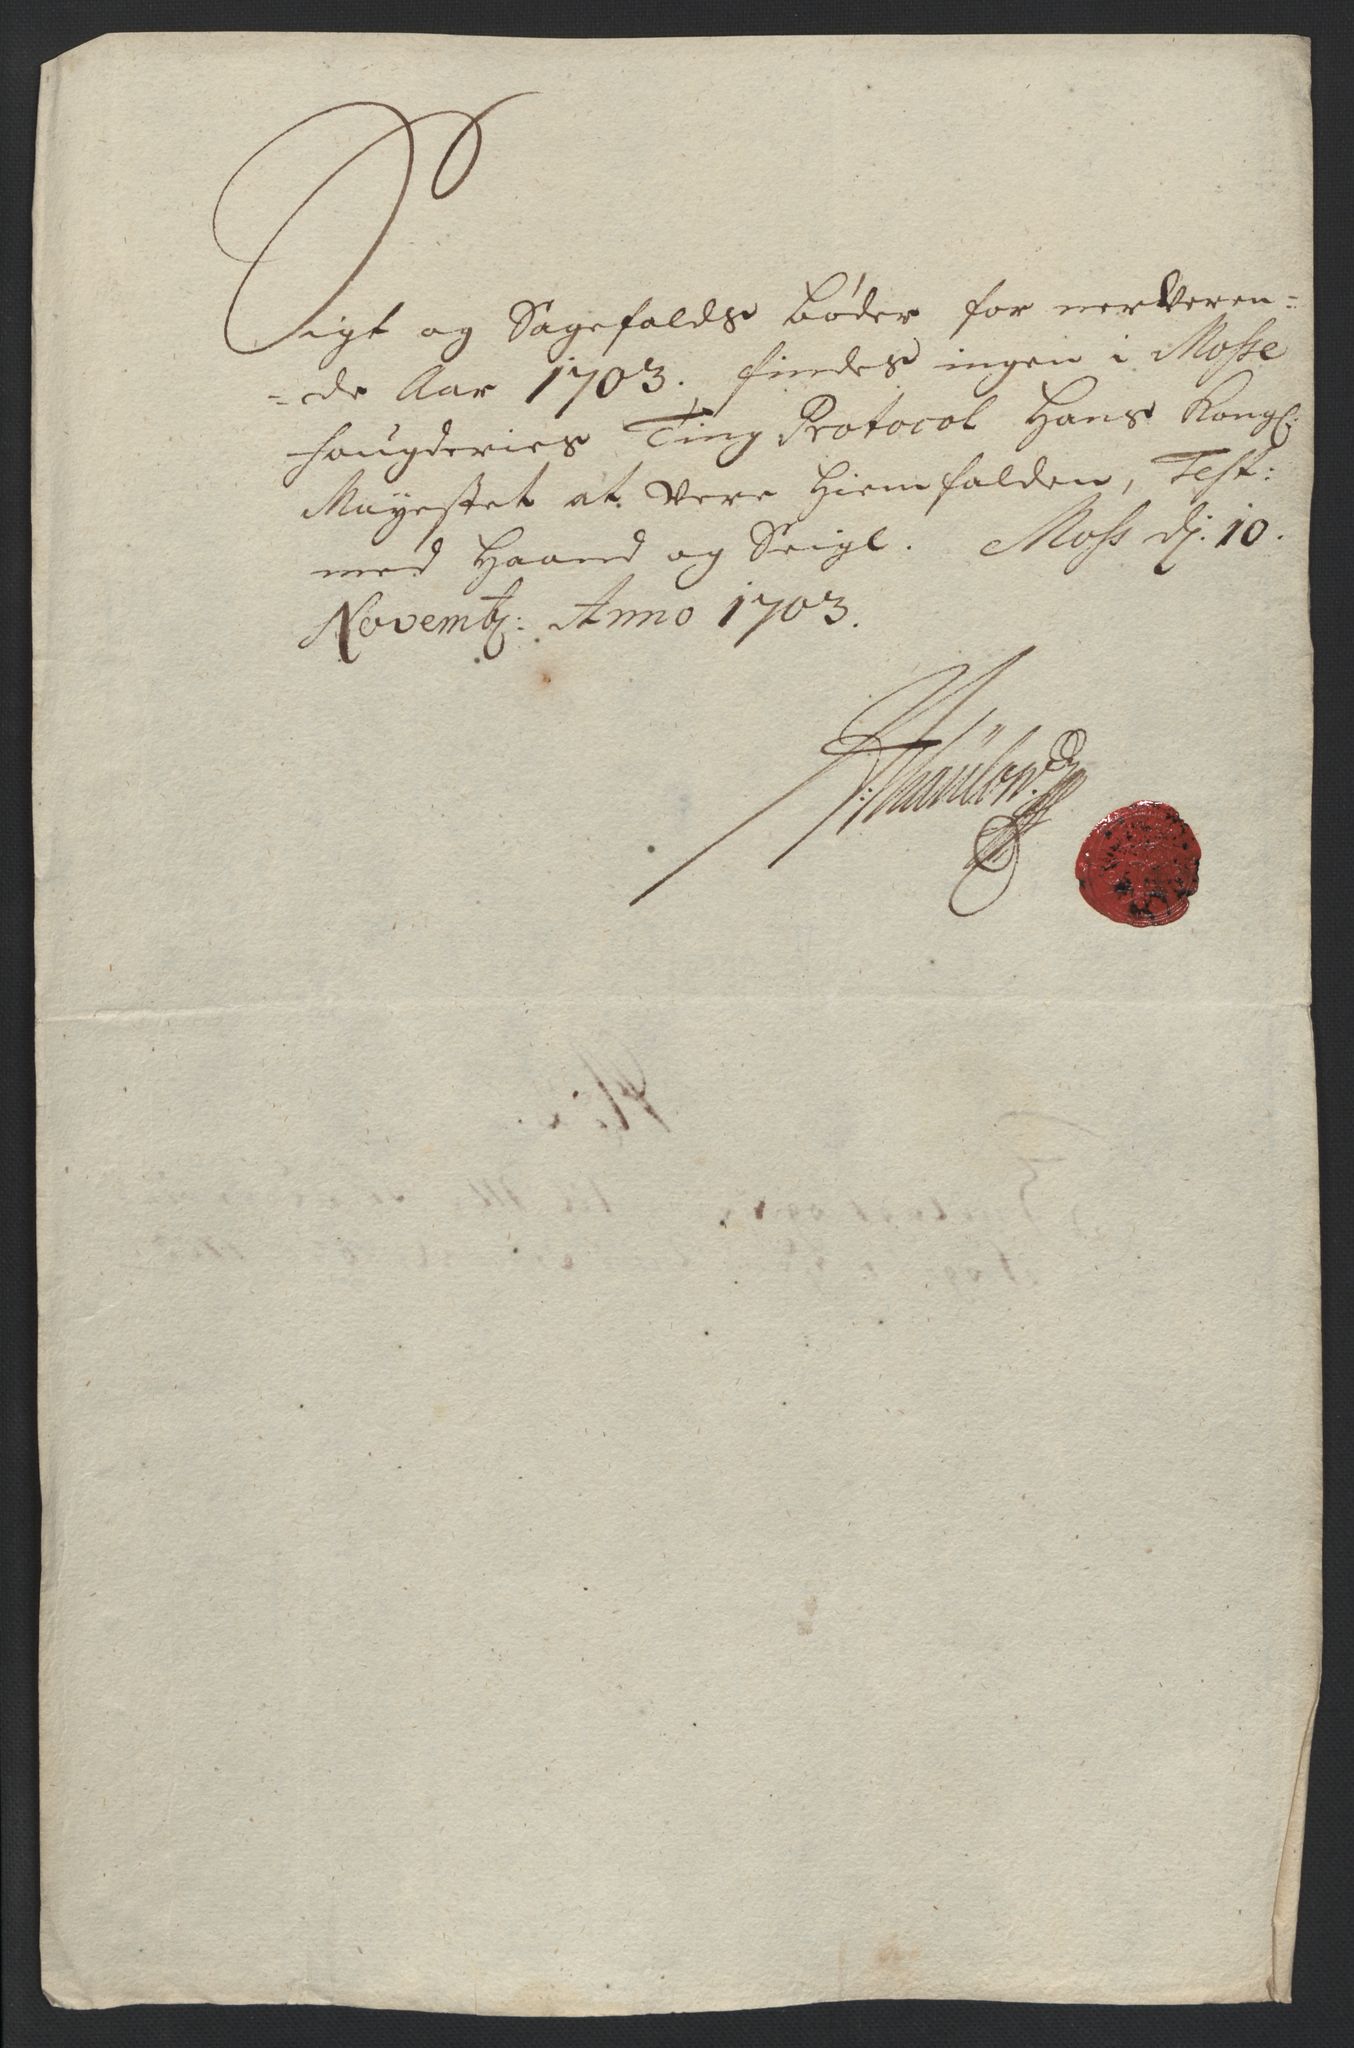 Sigt og Sagefalds bøder for nerveren=
=de Aar 1703. findes ingen i Mosse
fougderies Ting Protocol Hans Kongl:
Mayestet at vere hiemfalden, Test:
med Haand og Seigl. Moss dj. 10.
Novembr: Anno 1703.